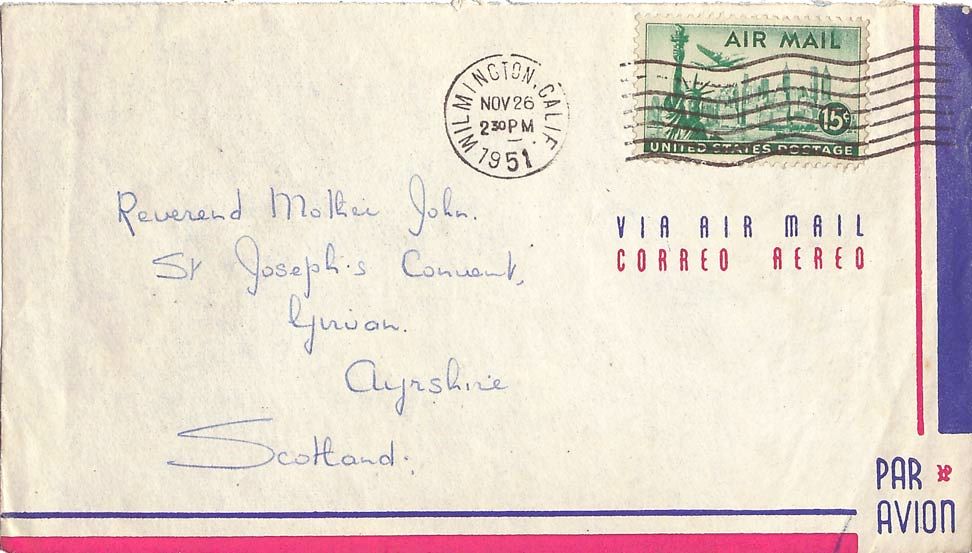 AIR MAIL
15¢
UNITED STATES POSTAGE
WILMINGTON, CALIF.
NOV 26
2 30 PM
1951
VIA AIR MAIL
CORREO AEREO
Reverend Mother John.
St Joseph's Convent,
Girvan.
Ayrshire
Scotland.
PAR
AVION